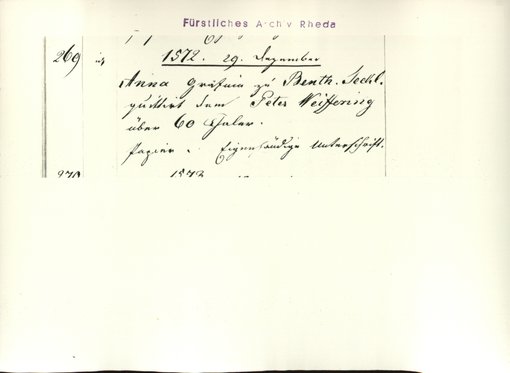 Fürstliches Archiv Rheda
269
1572. 29. Dezember
Anna Gräfin zu Benth. Teckl.
quittirt dem Peter Weiffering
über 60 Thaler.
Papier. Eigenhändige Unterschrift.
270 1572